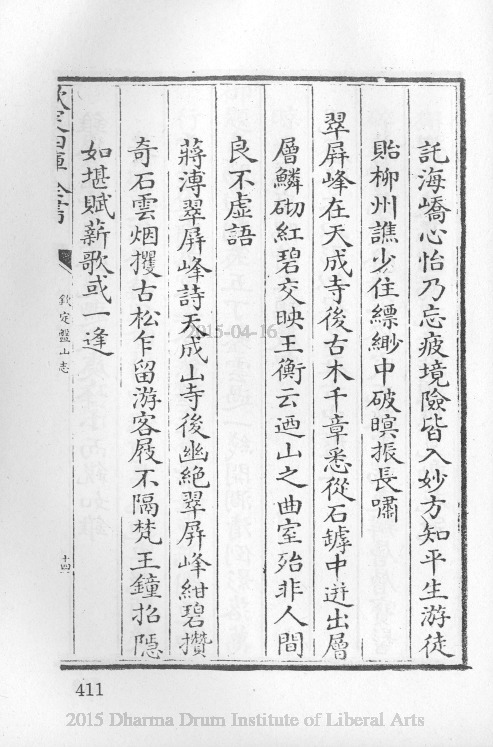 託海嶠心怡乃忘疲境險皆入妙方知平生游徒
貽柳州譙少住縹緲中破暝振長嘯
翠屏峰在天成寺後古木千章悉從石罅中迸出層
層鱗砌紅碧交映王衡云迺山之曲室殆非人間
良不虛語
蔣溥翠屏峰詩天成山寺後幽絶翠屏峰紺碧攢
奇石雲烟攫古松乍留游客屐不隔梵王鐘招隱
如堪賦薪歌或一逢
欽定四庫全書
欽定盤山志
十四
2015-04-16
411
2015 Dharma Drum Institute of Liberal Arts